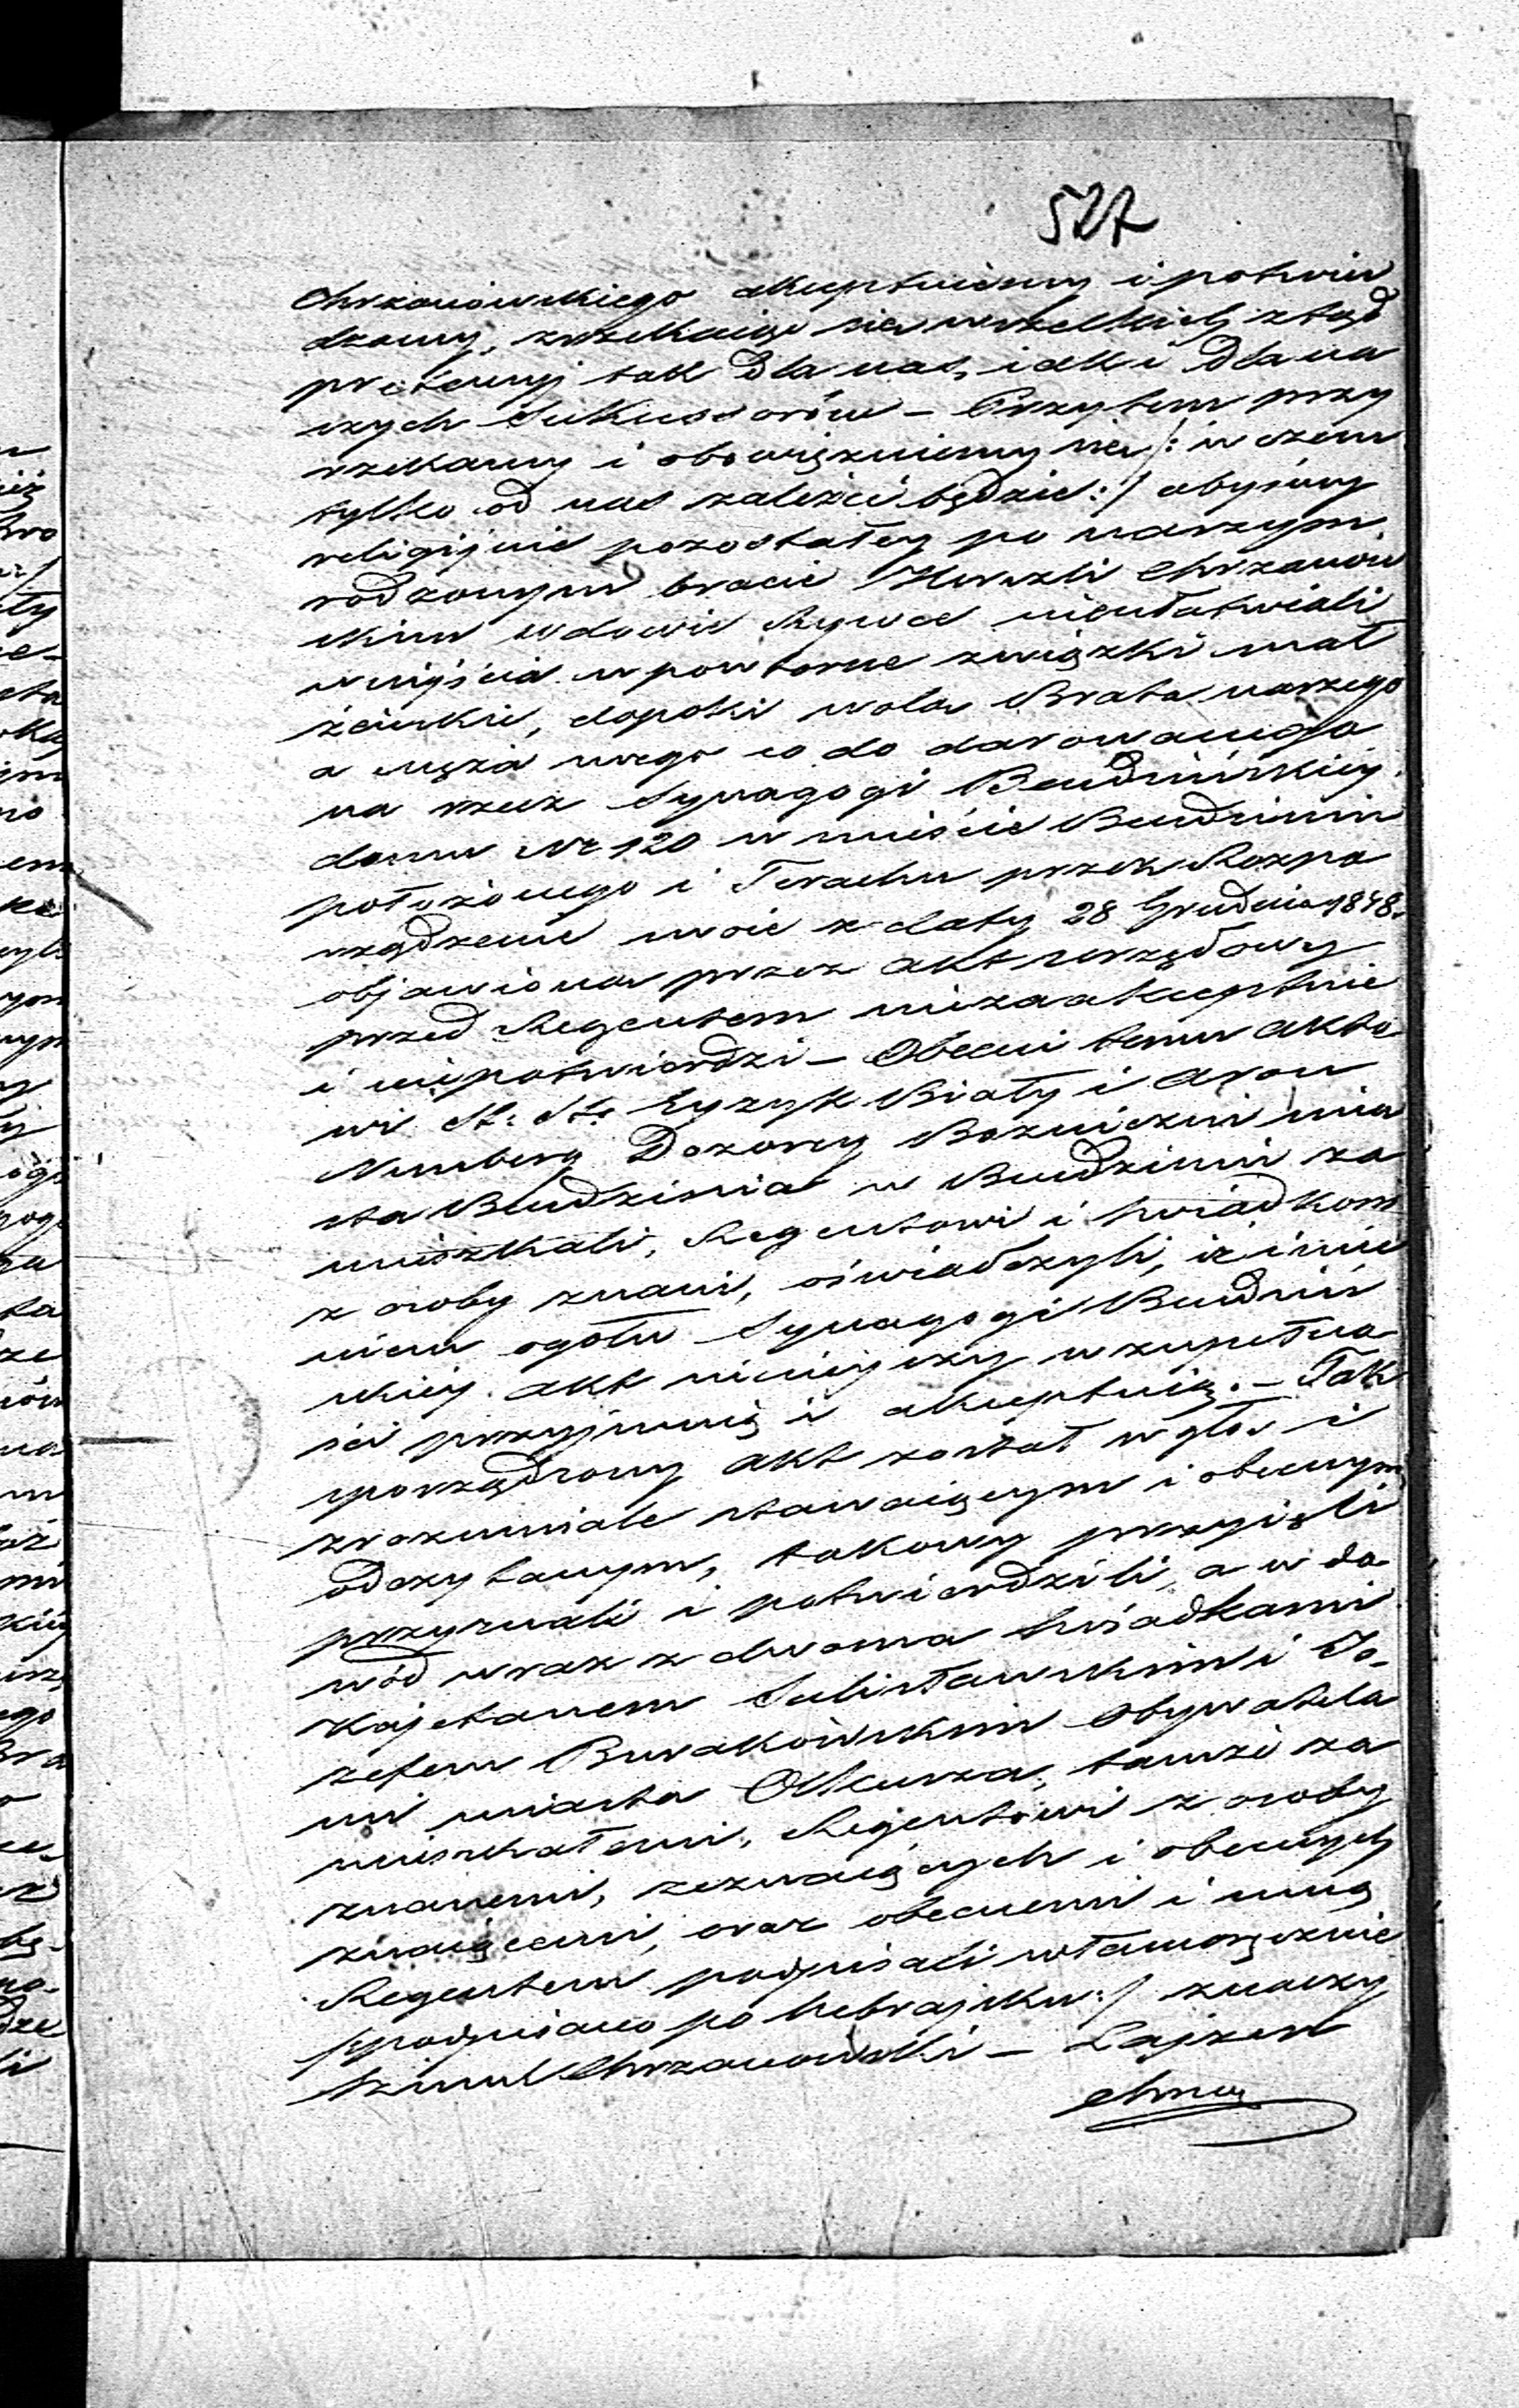 527
Chrzanowskiego akceptuiemy i potwier
dzamy, zrzekaiąc się wszelkich ztąd
pretensyj tak dla nas, iak i dla na
szych Sukcessorów – Przytem przy
rzekamy i obowiązuiemy się /: w czem
tylko od nas zależeć będzie :/ abyśmy
religijnie pozostałey po naszym
rodzonym bracie Herszli Chrzanow
skim wdowie Rywce nieułatwiali
wnijścia w powtorne związki mał
żeńskie, dopoki wola Brata naszego
a męża swego co do darowanego
na rzecz Synagogi Bendzińskiey
domu Nr 120 w mieście Bendzinie
położonego i przez Rozpo
rządzenie swoie z daty 28 Grudnia 1848
objawiona przez akt urzędowy
przed Regentem niezaakceptuie
i niepotwierdzi – Obecni temu akto
wi St: St: Eyzyk Biały i Aron
Nunberg Dozorcy Bozniczni mia
sta Bendzinia w Bendzinie za
mieszkali, Regentowi i świadkom
z osoby znani, oświadczyli, iż imie
niem ogołu Synagogi Bendziń
skiey akt ninieyszy w zupełno
ści przyjmuią i akceptuią. – Tak
sporządzony akt został w głos i
zrozumiale stawaiącym i obecnym
odczytanym, takowy przyięli
przyznali i potwierdzili, a w do
wód wraz z dwoma świadkami
Kajetanem Sulisławskim i Jó-
zefem Burakowskim Obywatela
mi miasta Olkusza, tamże za
mieszkałemi, Regentowi z osoby
znanemi, zeznaiących i obecnych
znaiącemi, oraz obecnemi i mną
Regentem podpisali własnoręcznie
/podpisano po hebrajsku:/ znaczy
Szmul Chrzanowski – Lajzer
Chrza